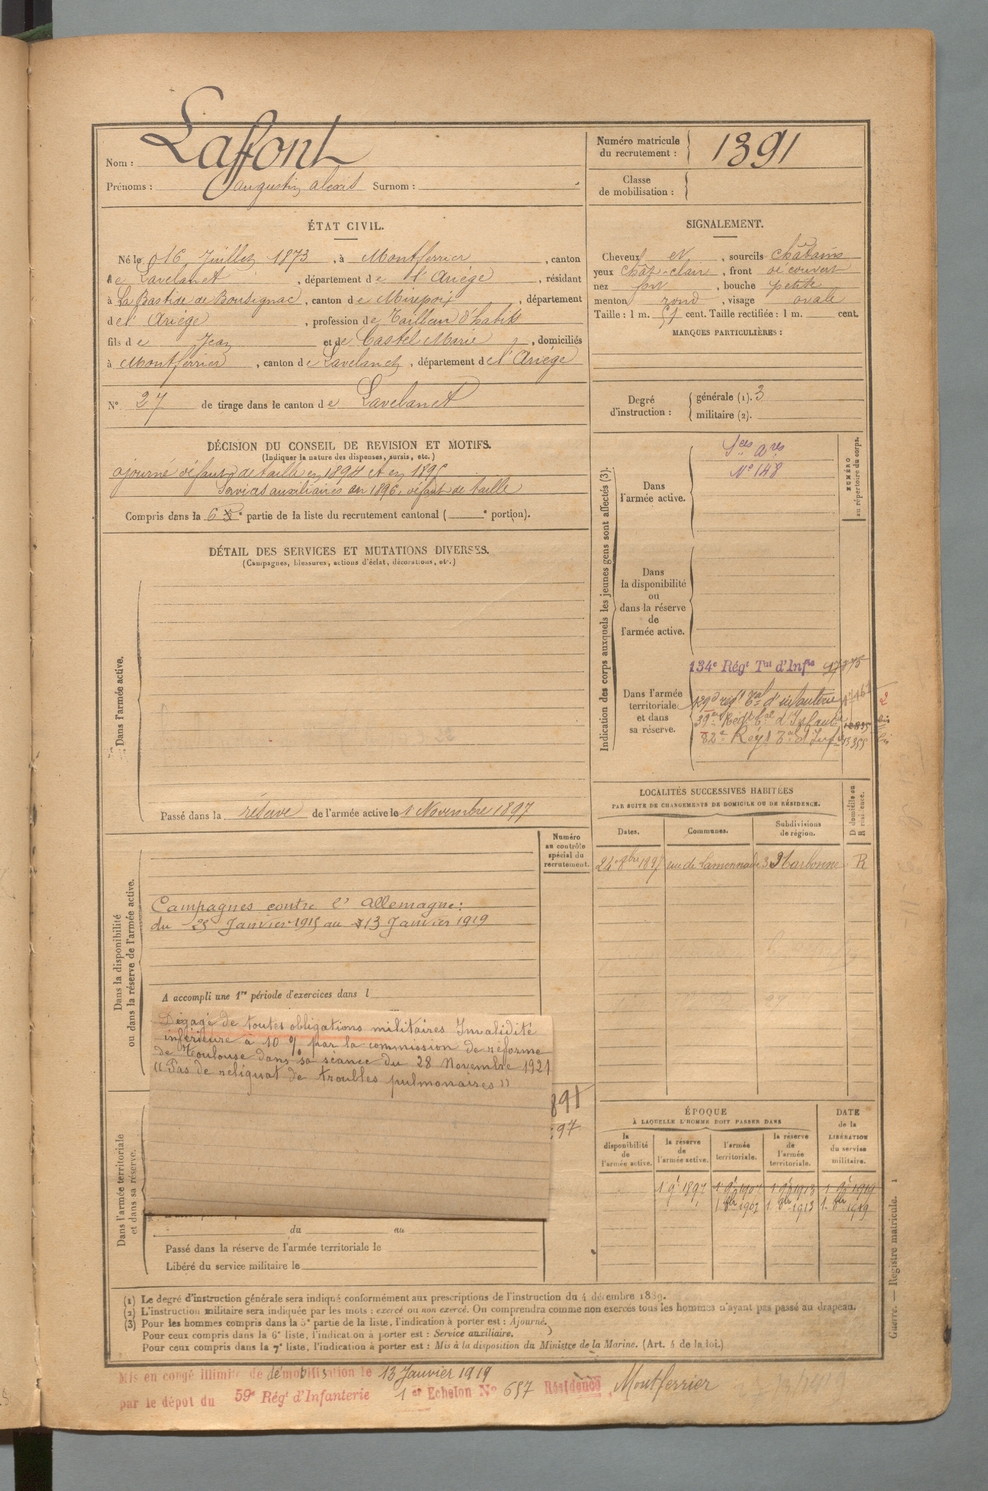 Nom : Lafont
Prénoms : Augustin Alexis Surnom :
Numéro matricule du recrutement : 1391
Classe de mobilisation :
ÉTAT CIVIL.
Né le 16 Juillet 1873, à Montferrier, canton
de Lavelanet, département de l'Ariège, résidant
à La Bastide de Bousignac, canton de Mirepoix, département
de l'Ariège, profession de Tailleur d'habits
fils de Jean et de Castel Marie, domiciliés
à Montferrier, canton de Lavelanet, département de l'Ariège
N° 27 de tirage dans le canton de Lavelanet
SIGNALEMENT.
Cheveux et, sourcils châtains
yeux chât-claire, front découvert
nez fort, bouche petite
menton rond, visage ovale
Taille : 1 m. 51 cent. Taille rectifiée : 1 m. cent.
MARQUES PARTICULIÈRES :
Degré d'instruction : générale (1). 3
militaire (2).
DÉCISION DU CONSEIL DE REVISION ET MOTIFS.
(Indiquer la nature des dispenses, sursis, etc.)
ajourné défaut de taille en 1894 et en 1895
Services auxiliaires en 1896, défaut de taille
Compris dans la 6e partie de la liste du recrutement cantonal ( e portion).
DÉTAIL DES SERVICES ET MUTATIONS DIVERSES.
(Campagnes, blessures, actions d'éclat, décorations, etc.)
Dans l'armée active.
Passé dans la réserve de l'armée active le 1 Novembre 1897
Indication des corps auxquels les jeunes gens sont affectés (3).
NUMÉRO au répertoire du corps.
Dans l'armée active.
N° 148
Dans la disponibilité ou dans la réserve de l'armée active.
Dans l'armée territoriale et dans sa réserve.
134e Régt Tal d'Infie
LOCALITÉS SUCCESSIVES HABITÉES
PAR SUITE DE CHANGEMENTS DE DOMICILE OU DE RÉSIDENCE.
D domicile ou R résidence.
Dates. Communes. Subdivisions de région.
Narbonne R
Numéro au contrôle spécial du recrutement.
Dans la disponibilité ou dans la réserve de l'armée active.
Campagnes contre l'Allemagne :
du 25 Janvier 1915 au 13 Janvier 1919
A accompli une 1re période d'exercices dans l
Dégagé de toutes obligations militaires. Invalidité
inférieure à 10 % par la commission de réforme
de Toulouse dans sa séance du 28 Novembre 1921
"Pas de reliquat de troubles pulmonaires"
Dans l'armée territoriale et dans sa réserve.
du au
Passé dans la réserve de l'armée territoriale le
Libéré du service militaire le
ÉPOQUE
À LAQUELLE L'HOMME DOIT PASSER DANS
DATE de la LIBÉRATION du service militaire.
la disponibilité de l'armée active.
la réserve de l'armée active.
l'armée territoriale.
la réserve de l'armée territoriale.
(1) Le degré d'instruction générale sera indiqué conformément aux prescriptions de l'instruction du 4 décembre 1889.
(2) L'instruction militaire sera indiquée par les mots : exercé ou non exercé. On comprendra comme non exercés tous les hommes n'ayant pas passé au drapeau.
(3) Pour les hommes compris dans la 5e partie de la liste, l'indication à porter est : Ajourné.
Pour ceux compris dans la 6e liste, l'indication à porter est : Service auxiliaire.
Pour ceux compris dans la 7e liste, l'indication à porter est : Mis à la disposition du Ministre de la Marine. (Art. 4 de la loi.)
Guerre. — Registre matricule. 1
Mis en congé illimité de démobilisation le 13 Janvier 1919
par le dépôt du 59e Régt d'Infanterie 1er Echelon N° 657 Résidence Montferrier